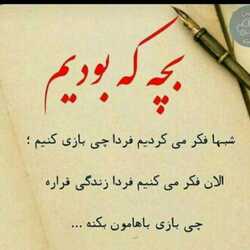 بچه که بودیم
شبها فکر می کردیم فردا چی بازی کنیم ؛
الان فکر می کنیم فردا زندگی قراره
چی بازی باهامون بکنه ...